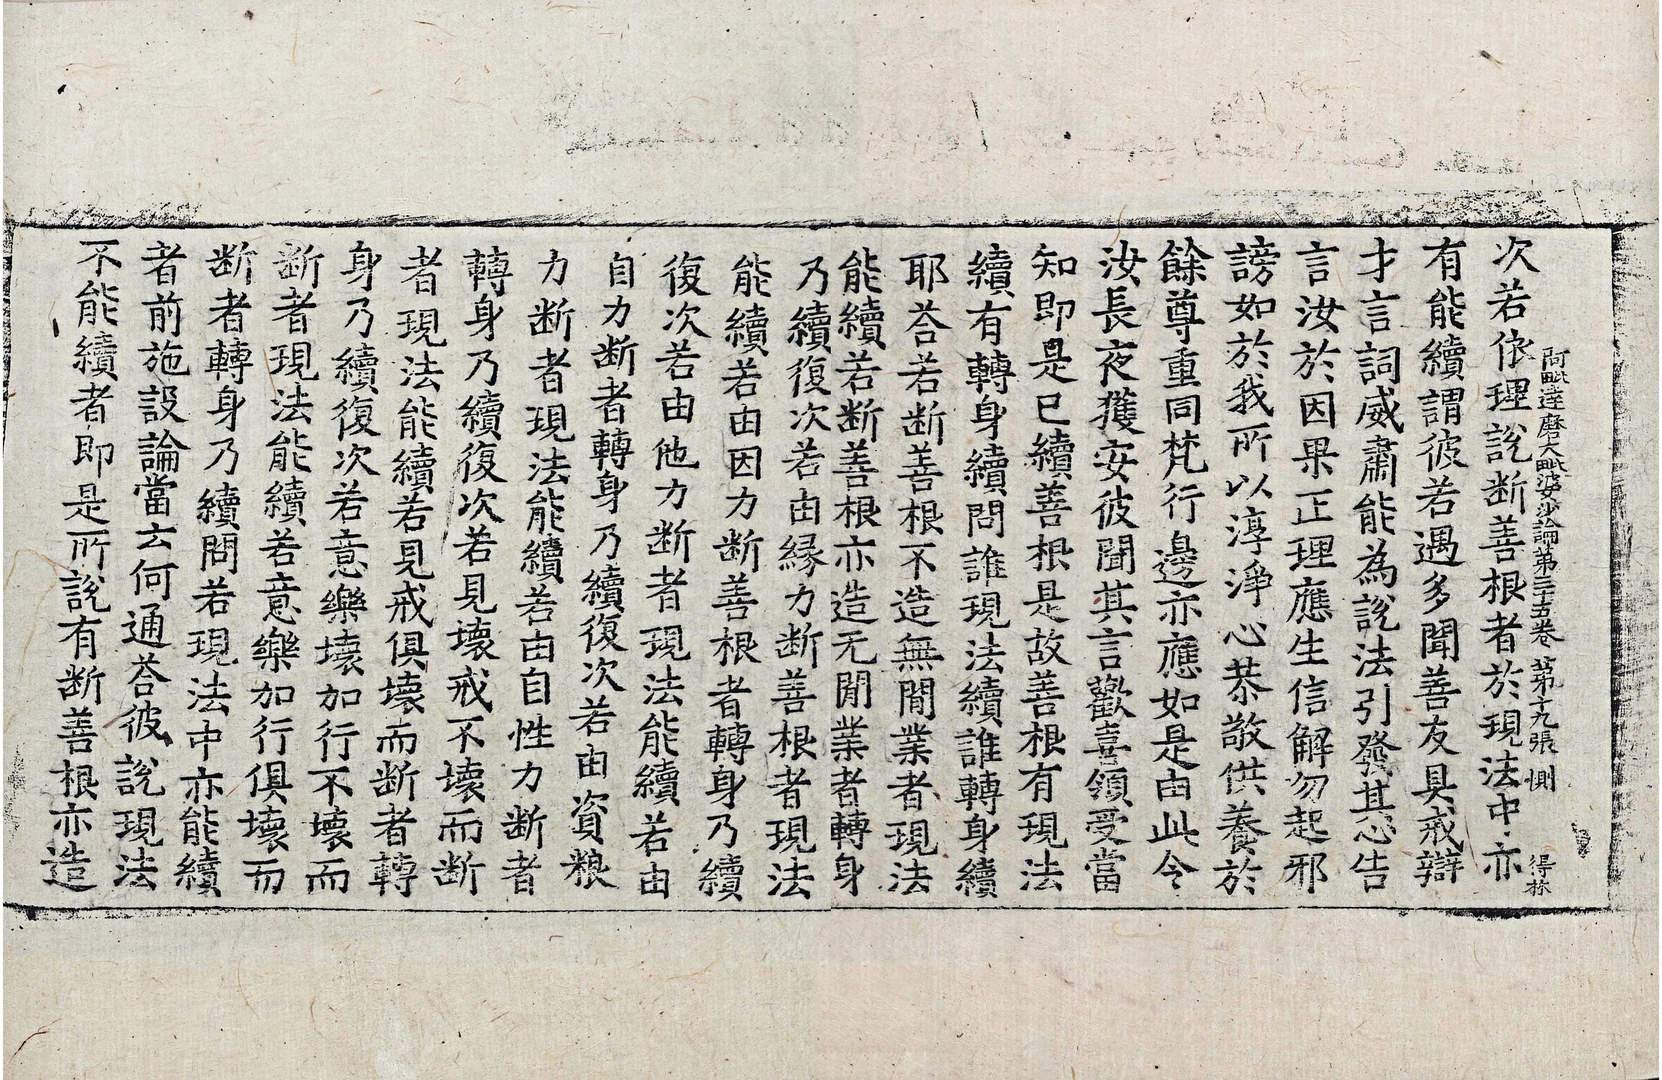 阿毗達磨大毗婆沙論第三十五卷 第十九張 惻 得林
次若依理說断善根者於現法中亦
有能續謂彼若遇多聞善友具戒辯
才言詞威肅能為說法引發其心告
言汝於因果正理應生信解勿起邪
謗如於我所以淳淨心恭敬供養於
餘尊重同梵行邊亦應如是由此令
汝長夜獲安彼聞其言歡喜領受當
知即是已續善根是故善根有現法
續有轉身續問誰現法續誰轉身續
耶荅若断善根不造無閒業者現法
能續若断善根亦造无閒業者轉身
乃續復次若由緣力断善根者現法
能續若由因力断善根者轉身乃續
復次若由他力断者現法能續若由
自力断者轉身乃續復次若由資粮
力断者現法能續若由自性力断者
轉身乃續復次若見壞戒不壞而断
者現法能續若見戒俱壞而断者轉
身乃續復次若意樂壞加行不壞而
断者現法能續若意樂加行俱壞而
断者轉身乃續問若現法中亦能續
者前施設論當云何通荅彼說現法
不能續者即是所說有断善根亦造